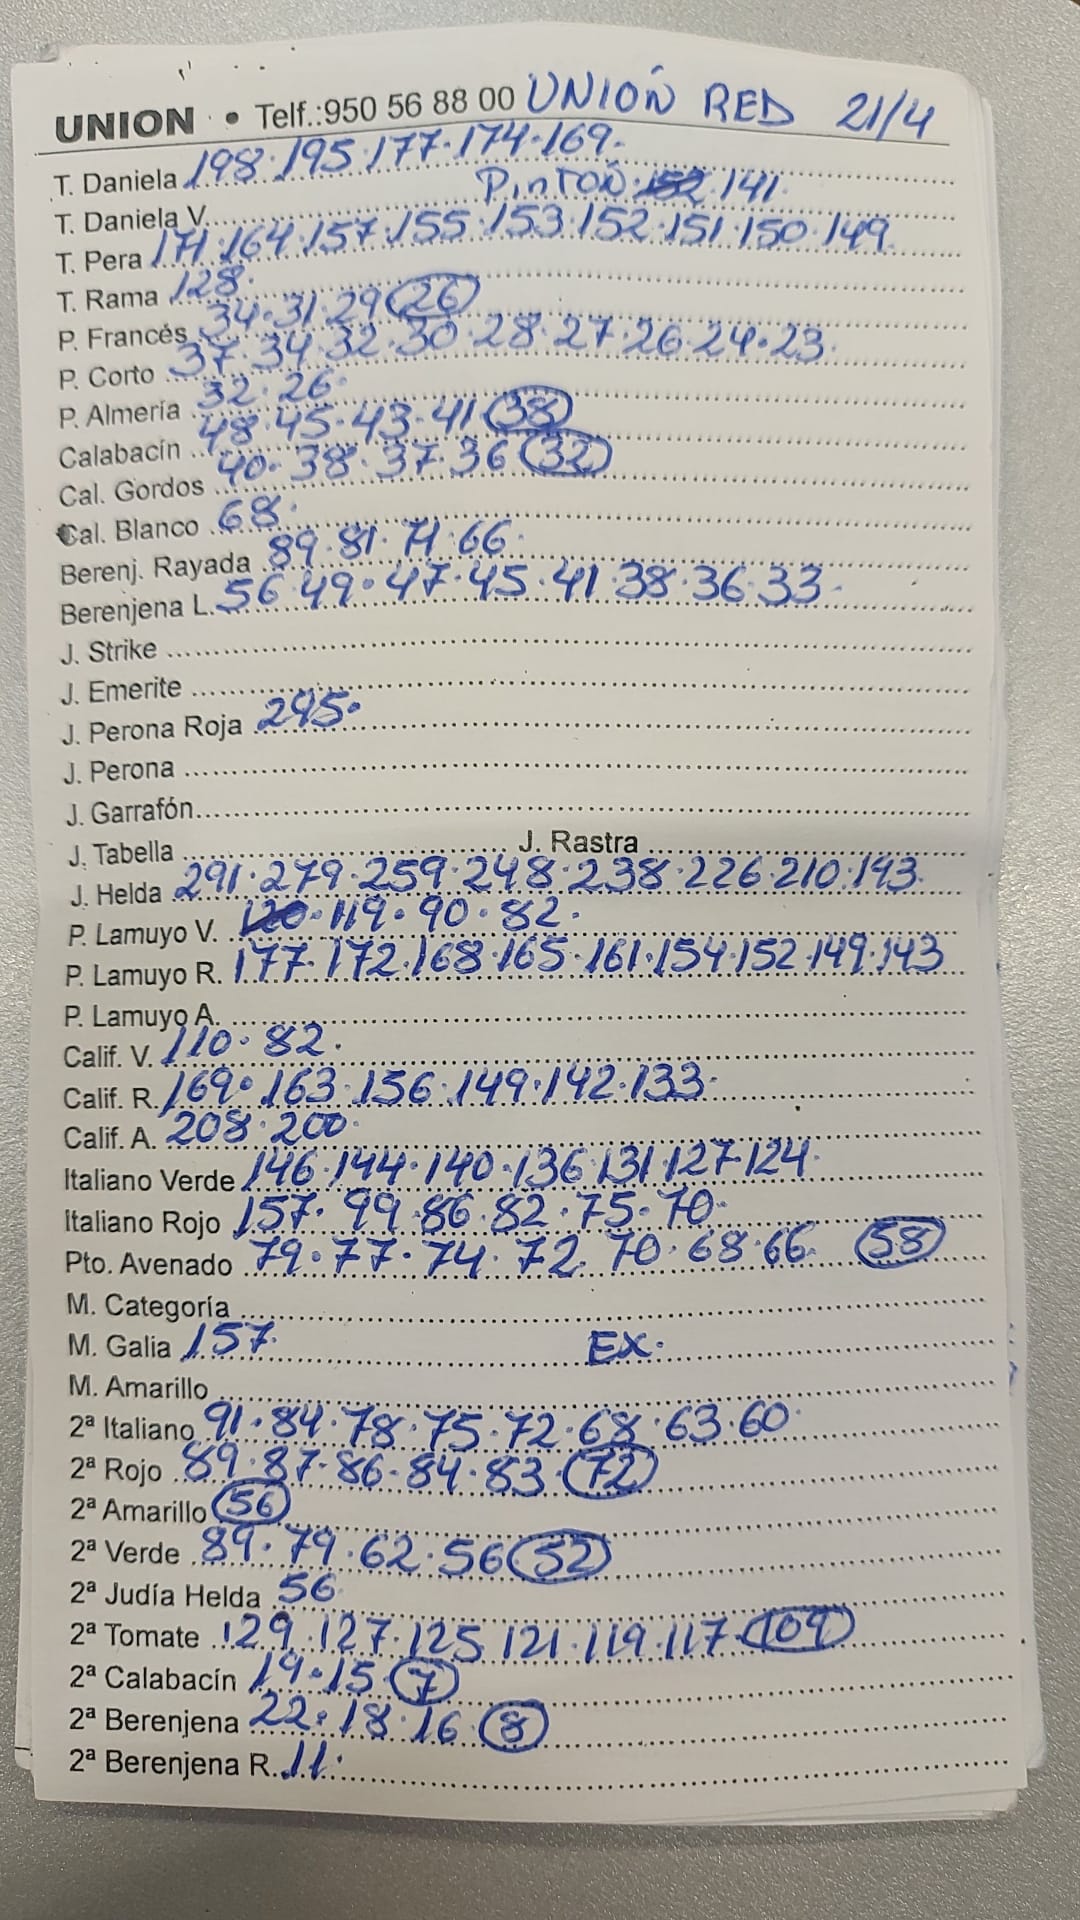 UNION • Telf.:950 56 88 00 UNIÓN RED 21/4
T. Daniela 198·195·177·174·169·
T. Daniela V. PinTON: 141·
T. Pera 171·164·157·155·153·152·151·150·149
T. Rama 128·
P. Francés 34·31·29 26
P. Corto 37·34·32·30·28·27·26·24·23·
P. Almería 32·26·
Calabacín 48·45·43·41 38
Cal. Gordos 40·38·37·36 32
Cal. Blanco 68·
Berenj. Rayada 89·81·71·66·
Berenjena L. 56·49·47·45·41·38·36·33·
J. Strike
J. Emerite
J. Perona Roja 295·
J. Perona
J. Garrafón
J. Tabella J. Rastra
J. Helda 291·279·259·248·238·226·210·193·
P. Lamuyo V. 120·119·90·82·
P. Lamuyo R. 177·172·168·165·161·154·152·149·143
P. Lamuyo A.
Calif. V. 110·82·
Calif. R. 169·163·156·149·142·133·
Calif. A. 208·200·
Italiano Verde 146·144·140·136·131·127·124·
Italiano Rojo 157·99·86·82·75·70·
Pto. Avenado 79·77·74·72·70·68·66· 58
M. Categoría
M. Galia 157· EX·
M. Amarillo
2ª Italiano 91·84·78·75·72·68·63·60·
2ª Rojo 89·87·86·84·83· 72
2ª Amarillo 56
2ª Verde 89·79·62·56 52
2ª Judía Helda 56
2ª Tomate 129·127·125 121·119·117· 109
2ª Calabacín 19·15· 7
2ª Berenjena 22·18·16 8
2ª Berenjena R. 11·